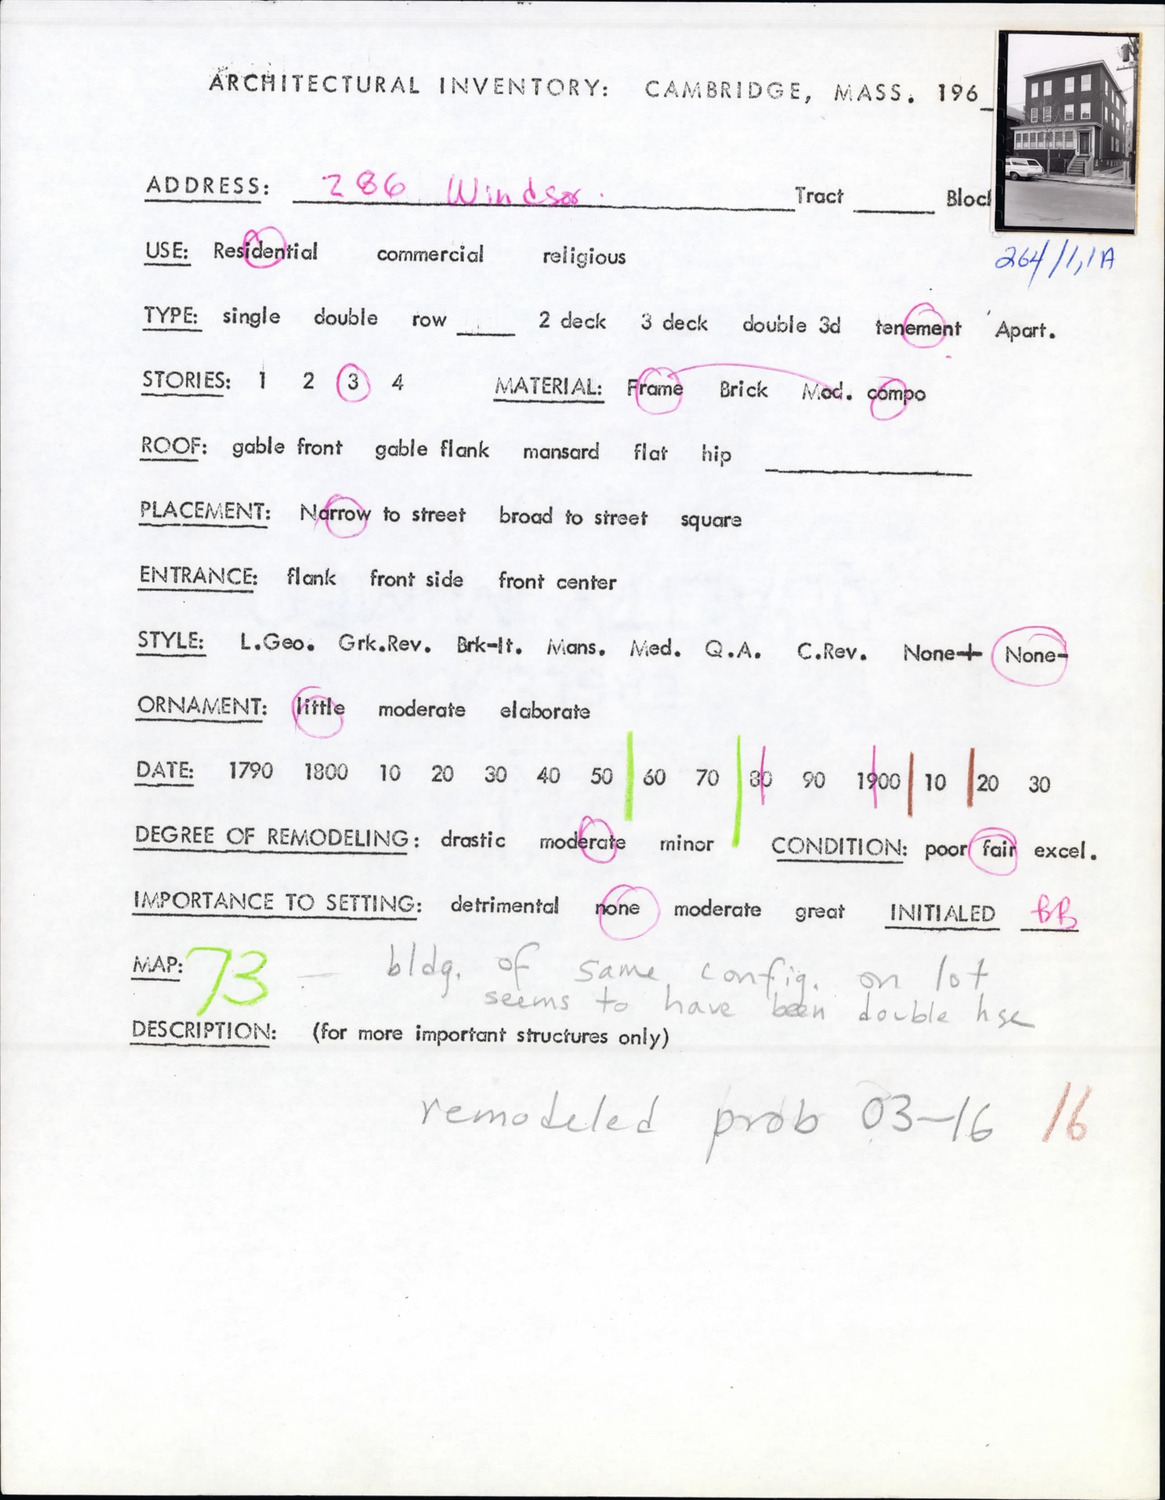 ARCHITECTURAL INVENTORY: CAMBRIDGE, MASS. 196_
ADDRESS: 286 Windsor. Tract ______ Bloc
264/1,1A
USE: Residential commercial religious
TYPE: single double row ____ 2 deck 3 deck double 3d tenement Apart.
STORIES: 1 2 3 4 MATERIAL: Frame Brick Mod. compo
ROOF: gable front gable flank mansard flat hip ____________
PLACEMENT: Narrow to street broad to street square
ENTRANCE: flank front side front center
STYLE: L.Geo. Grk.Rev. Brk-It. Mans. Med. Q.A. C.Rev. None+ None-
ORNAMENT: little moderate elaborate
DATE: 1790 1800 10 20 30 40 50 60 70 80 90 1900 10 20 30
DEGREE OF REMODELING: drastic moderate minor CONDITION: poor fair excel.
IMPORTANCE TO SETTING: detrimental none moderate great INITIALED BB
MAP: 73 — bldg. of same config. on lot
seems to have been double hse
DESCRIPTION: (for more important structures only)
remodeled prob 03-16 16